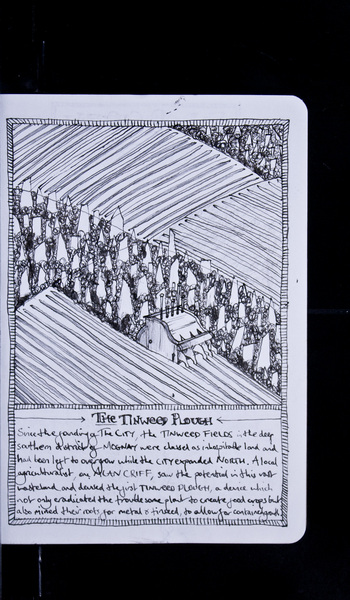 THE TINWEED PLOUGH
Since the founding of THE CITY, the TINWEED FIELDS in the deep
southern district of were classed as inhospitable land and
had been left to overgrow while the CITY expanded NORTH. A local
agriculturalist, saw the potential in this vast
wasteland and devised the first TINWEED PLOUGH, a device which
not only eradicated the troublesome plant to create food crops but
also mined their roots for metal & tinseed, to allow for contained growth.